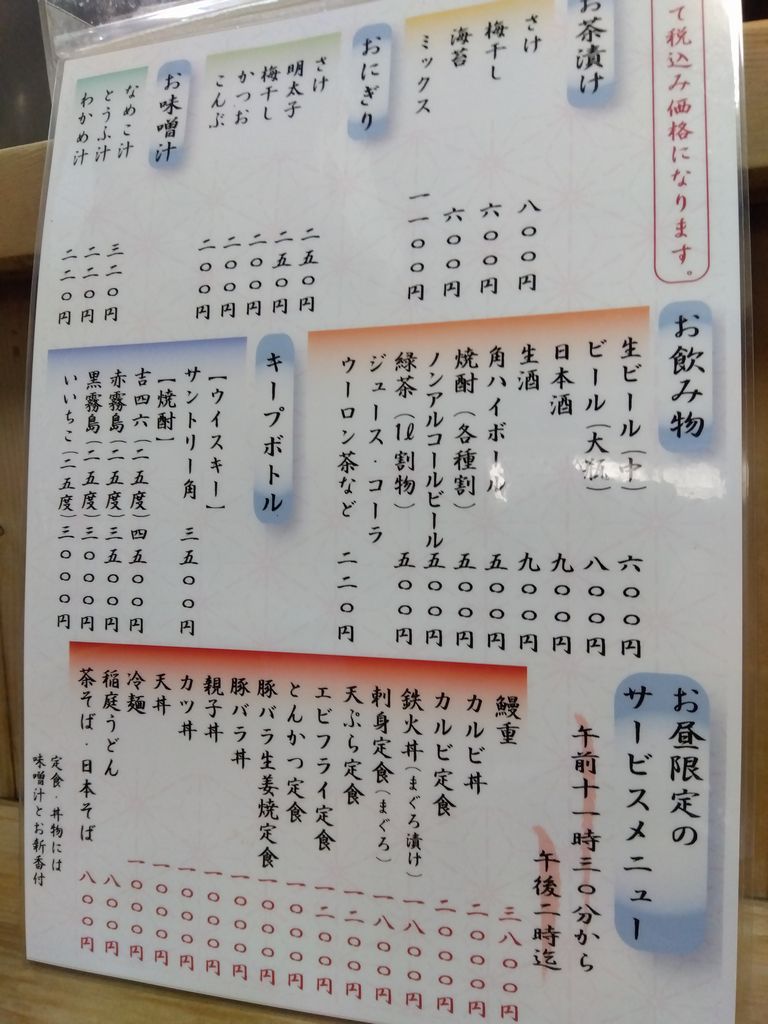 て税込み価格になります。
お茶漬け
さけ 八〇〇円
梅干し 六〇〇円
海苔 六〇〇円
ミックス 一一〇〇円
おにぎり
さけ 二五〇円
明太子 二五〇円
梅干し 二〇〇円
かつお 二〇〇円
こんぶ 二〇〇円
お味噌汁
なめこ汁 三二〇円
とうふ汁 二二〇円
わかめ汁 二二〇円
お飲み物
生ビール(中) 六〇〇円
ビール(大瓶) 八〇〇円
日本酒 九〇〇円
生酒 九〇〇円
角ハイボール 五〇〇円
焼酎(各種割) 五〇〇円
ノンアルコールビール 五〇〇円
緑茶(1ℓ割物) 五〇〇円
ジュース・コーラ
ウーロン茶など 二二〇円
キープボトル
【ウイスキー】
サントリー角 三五〇〇円
【焼酎】
吉四六(二五度)四五〇〇円
赤霧島(二五度)三五〇〇円
黒霧島(二五度)三〇〇〇円
いいちこ(二五度)三〇〇〇円
お昼限定の
サービスメニュー
午前十一時三〇分から
午後二時迄
鰻重 三八〇〇円
カルビ丼 二〇〇〇円
カルビ定食 二〇〇〇円
鉄火丼(まぐろ漬け) 一八〇〇円
刺身定食(まぐろ) 一八〇〇円
天ぷら定食 一二〇〇円
エビフライ定食 一二〇〇円
とんかつ定食 一〇〇〇円
豚バラ生姜焼定食 一〇〇〇円
豚バラ丼 一〇〇〇円
親子丼 一〇〇〇円
カツ丼 一〇〇〇円
天丼 一〇〇〇円
冷麺 一〇〇〇円
稲庭うどん 八〇〇円
茶そば・日本そば 八〇〇円
定食・丼物には
味噌汁とお新香付